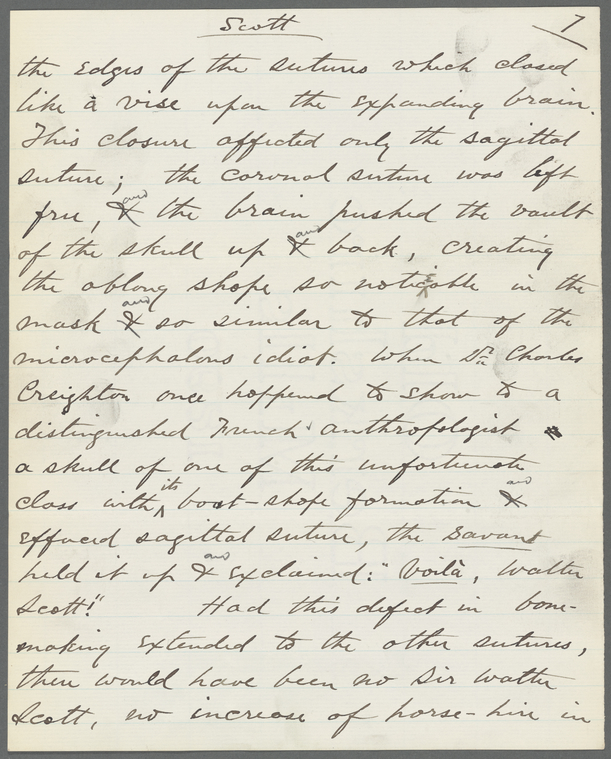 Scott 7
the edges of the sutures which closed
like a vise upon the expanding brain.
This closure affected only the sagittal
suture; the coronal suture was left
free, & and the brain pushed the vault
of the skull up & and back, creating
the oblong shape so noticeable in the
mask & and so similar to that of the
microcephalous idiot. When Dr. Charles
Creighton once happened to show to a
distinguished French anthropologist
a skull of one of this unfortunate
class with its boat-shape formation & and
effaced sagittal suture, the savant
held it up & and exclaimed: "Voilà, Walter
Scott!" Had this defect in bone-
making extended to the other sutures,
there would have been no Sir Walter
Scott, no increase of horse-hire in